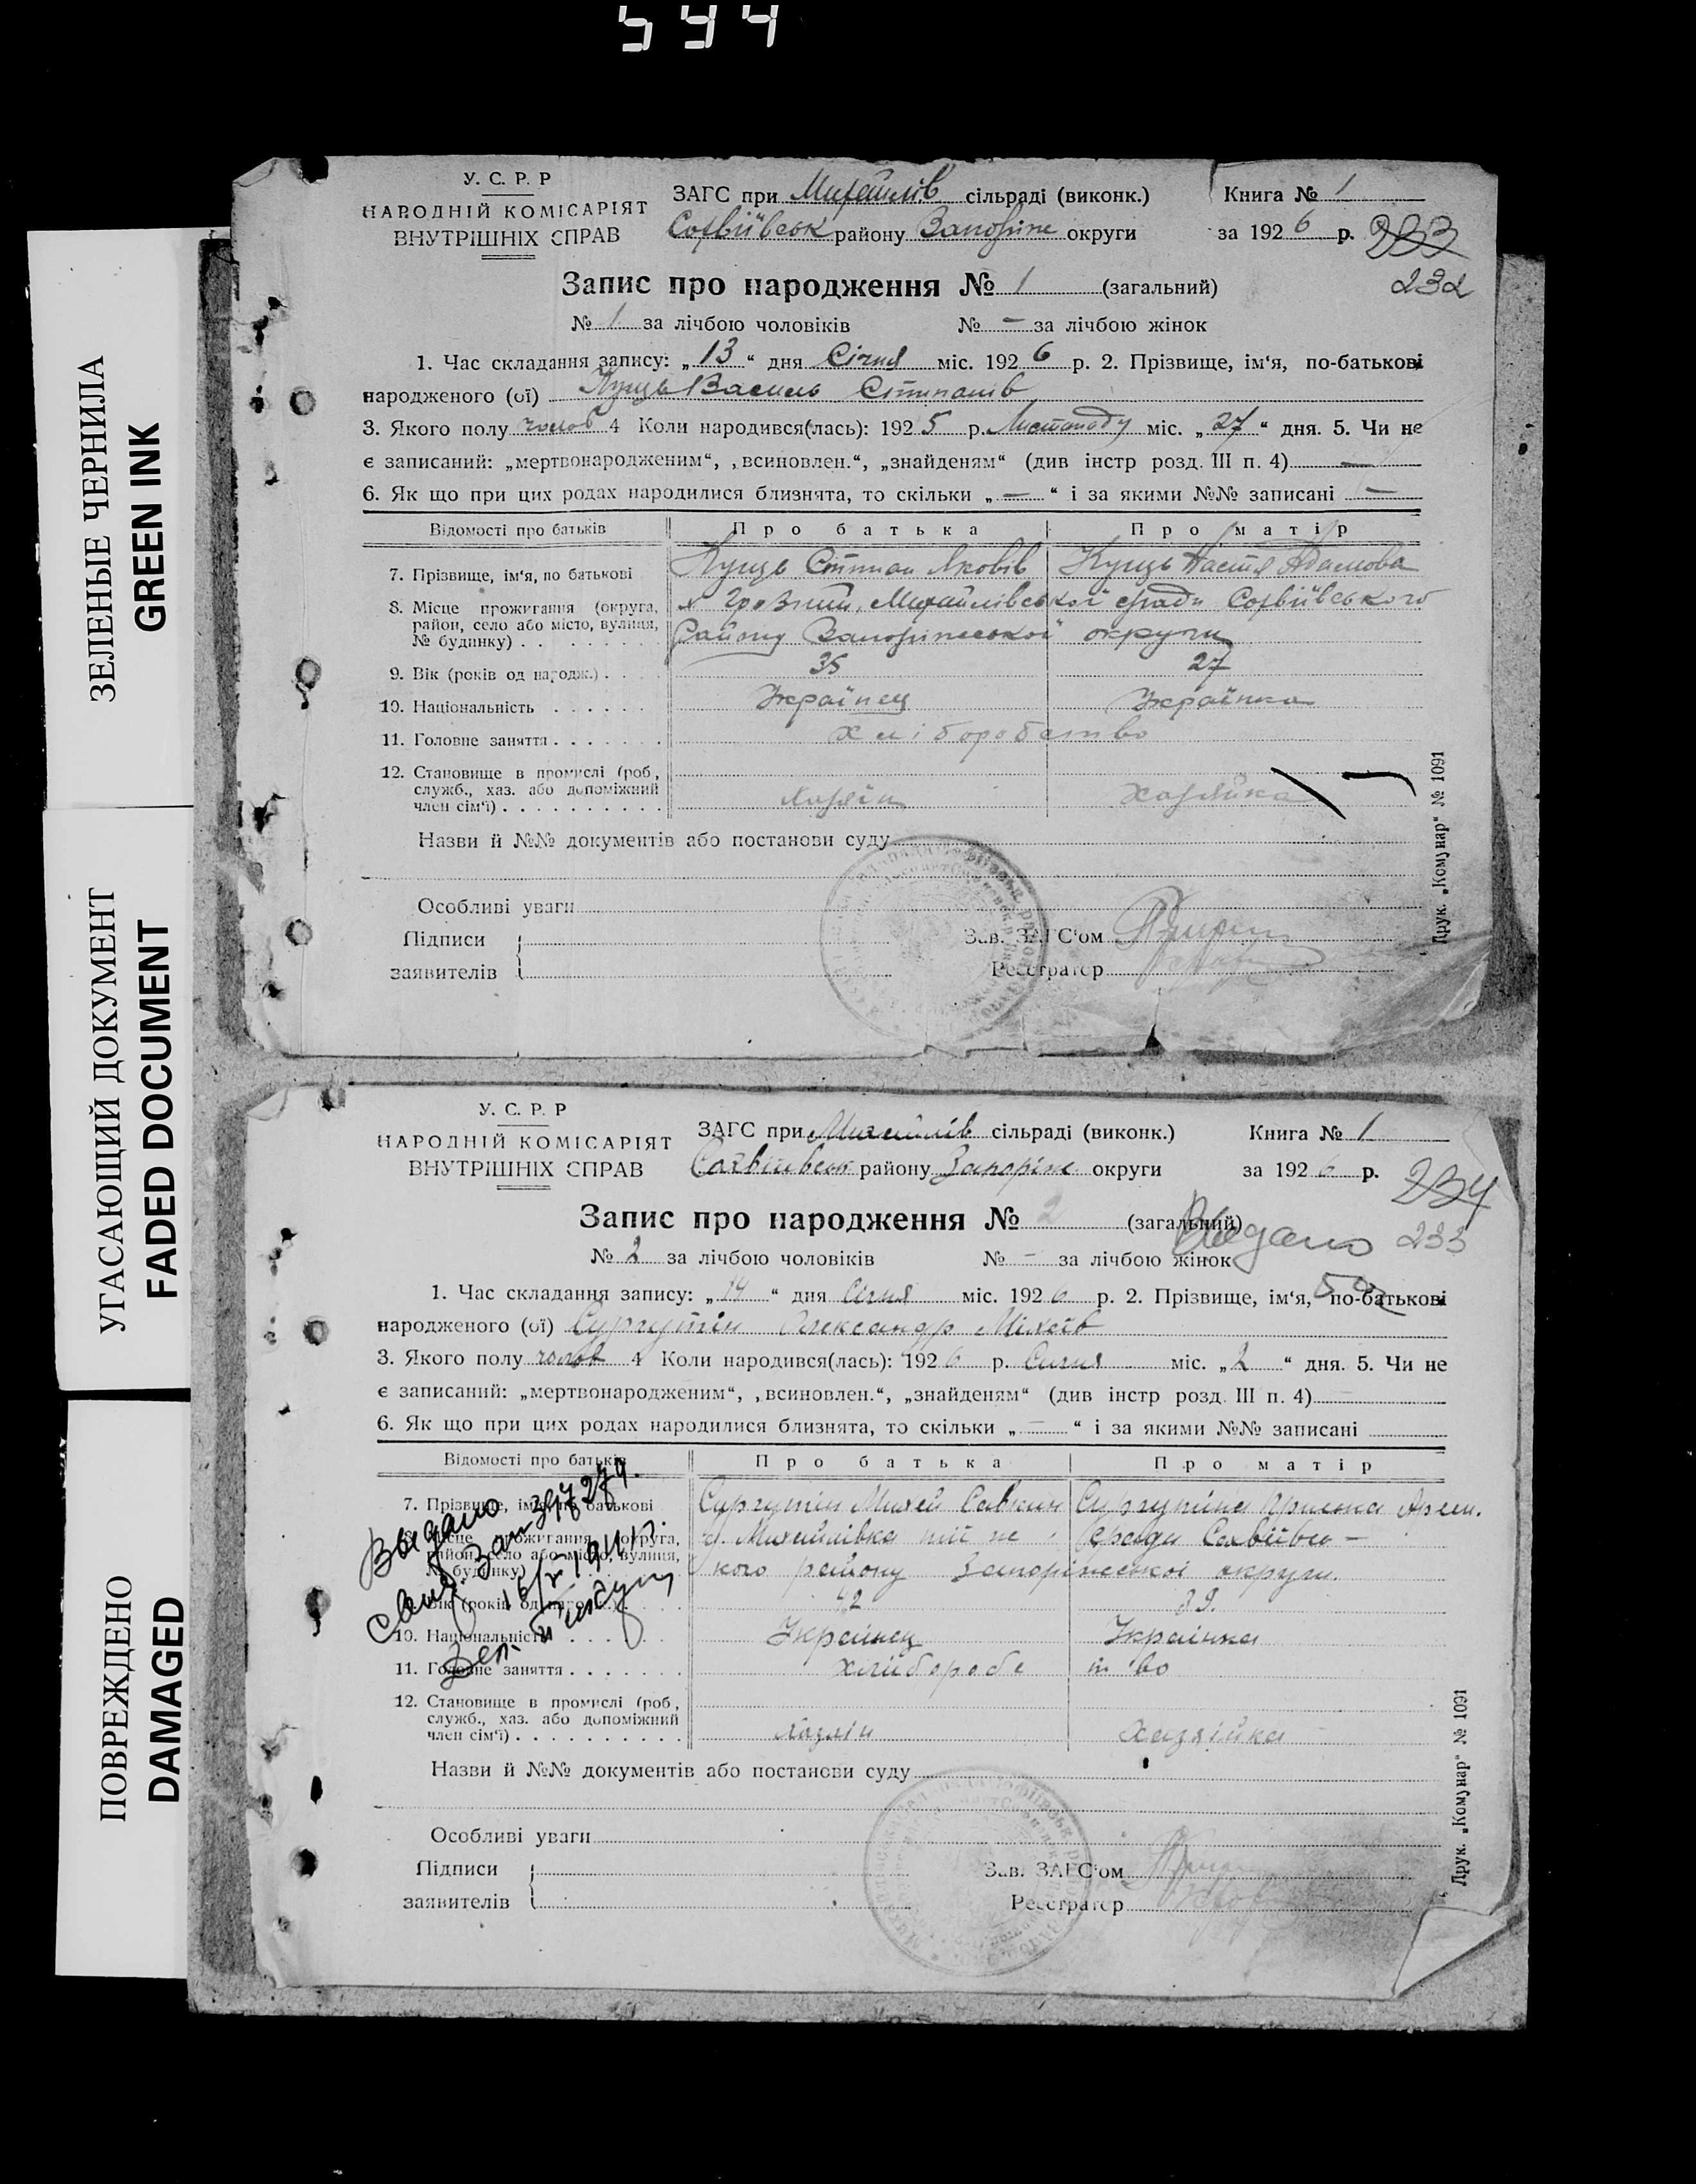 544
ЗЕЛЕНЫЕ ЧЕРНИЛА
GREEN INK
УГАСАЮЩИЙ ДОКУМЕНТ
FADED DOCUMENT
ПОВРЕЖДЕНО
DAMAGED
У. С. Р. Р
НАРОДНІЙ КОМІСАРІЯТ
ВНУТРІШНІХ СПРАВ
ЗАГС при Михайлів сільраді (виконк.)
Софвіївськ району Запоріжс округи
Книга № 1
за 1926 р. 233
232
Запис про народження № 1 (загальний)
№ 1 за лічбою чоловіків № — за лічбою жінок
1. Час складання запису: „13“ дня Січня міс. 1926 р. 2. Прізвище, ім‘я, по-батькові
народженого (ої) Кущь Василь Степанів
3. Якого полу чолов 4 Коли народився(лась): 1925 р. Листопаду міс. „27“ дня. 5. Чи не
є записаний: „мертвонародженим“, „всиновлен.“, „знайденям“ (див інстр розд. III п. 4) —
6. Як що при цих родах народилися близнята, то скільки „—“ і за якими №№ записані —
Відомості про батьків Про батька Про матір
7. Прізвище, ім‘я, по батькові Кущь Степан Яковів Кущь Настя Адамова
8. Місце прожигання (округа, район, село або місто, вулиця, № будинку) Михайлівської сради Софвіївського
Району Запоріжської округи
9. Вік (років од народж.) 35 27
10. Національність Українец Українка
11. Головне заняття Хліборобство
12. Становище в промислі (роб, служб., хаз. або допоміжний член сім‘ї) Хазяїн Хазяйка
Назви й №№ документів або постанови суду
Особливі уваги
Підписи
заявителів
Зав. ЗАГС‘ом
Реєстратор
Друк. „Комунар“ № 1091
У. С. Р. Р
НАРОДНІЙ КОМІСАРІЯТ
ВНУТРІШНІХ СПРАВ
ЗАГС при Михайлів сільраді (виконк.)
Софвіївськ району Запоріжс округи
Книга № 1
за 1926 р. 234
233
Запис про народження № 2 (загальний)
Выдано
№ 2 за лічбою чоловіків № — за лічбою жінок
1. Час складання запису: „14“ дня Січня міс. 1926 р. 2. Прізвище, ім‘я, по-батькові
народженого (ої) Сургутін Олександр Міхеїв
3. Якого полу чолов 4 Коли народився(лась): 1926 р. Січня міс. „2“ дня. 5. Чи не
є записаний: „мертвонародженим“, „всиновлен.“, „знайденям“ (див інстр розд. III п. 4)
6. Як що при цих родах народилися близнята, то скільки „—“ і за якими №№ записані
Відомості про батьків Про батька Про матір
7. Прізвище, ім‘я, по батькові Сургутін Михей Савкин Сургутіна
8. Місце прожигання (округа, район, село або місто, вулиця, № будинку) с. Михайлівка тії же сради Софвіївсь-
кого району Запоріжської округи.
9. Вік (років од народж.) 42 39.
10. Національність Українец Українка
11. Головне заняття хліборобство
12. Становище в промислі (роб, служб., хаз. або допоміжний член сім‘ї) Хазяїн Хазяїйка
Выдано
397279.
Назви й №№ документів або постанови суду
Особливі уваги
Підписи
заявителів
Зав. ЗАГС‘ом
Реєстратор
Друк. „Комунар“ № 1091